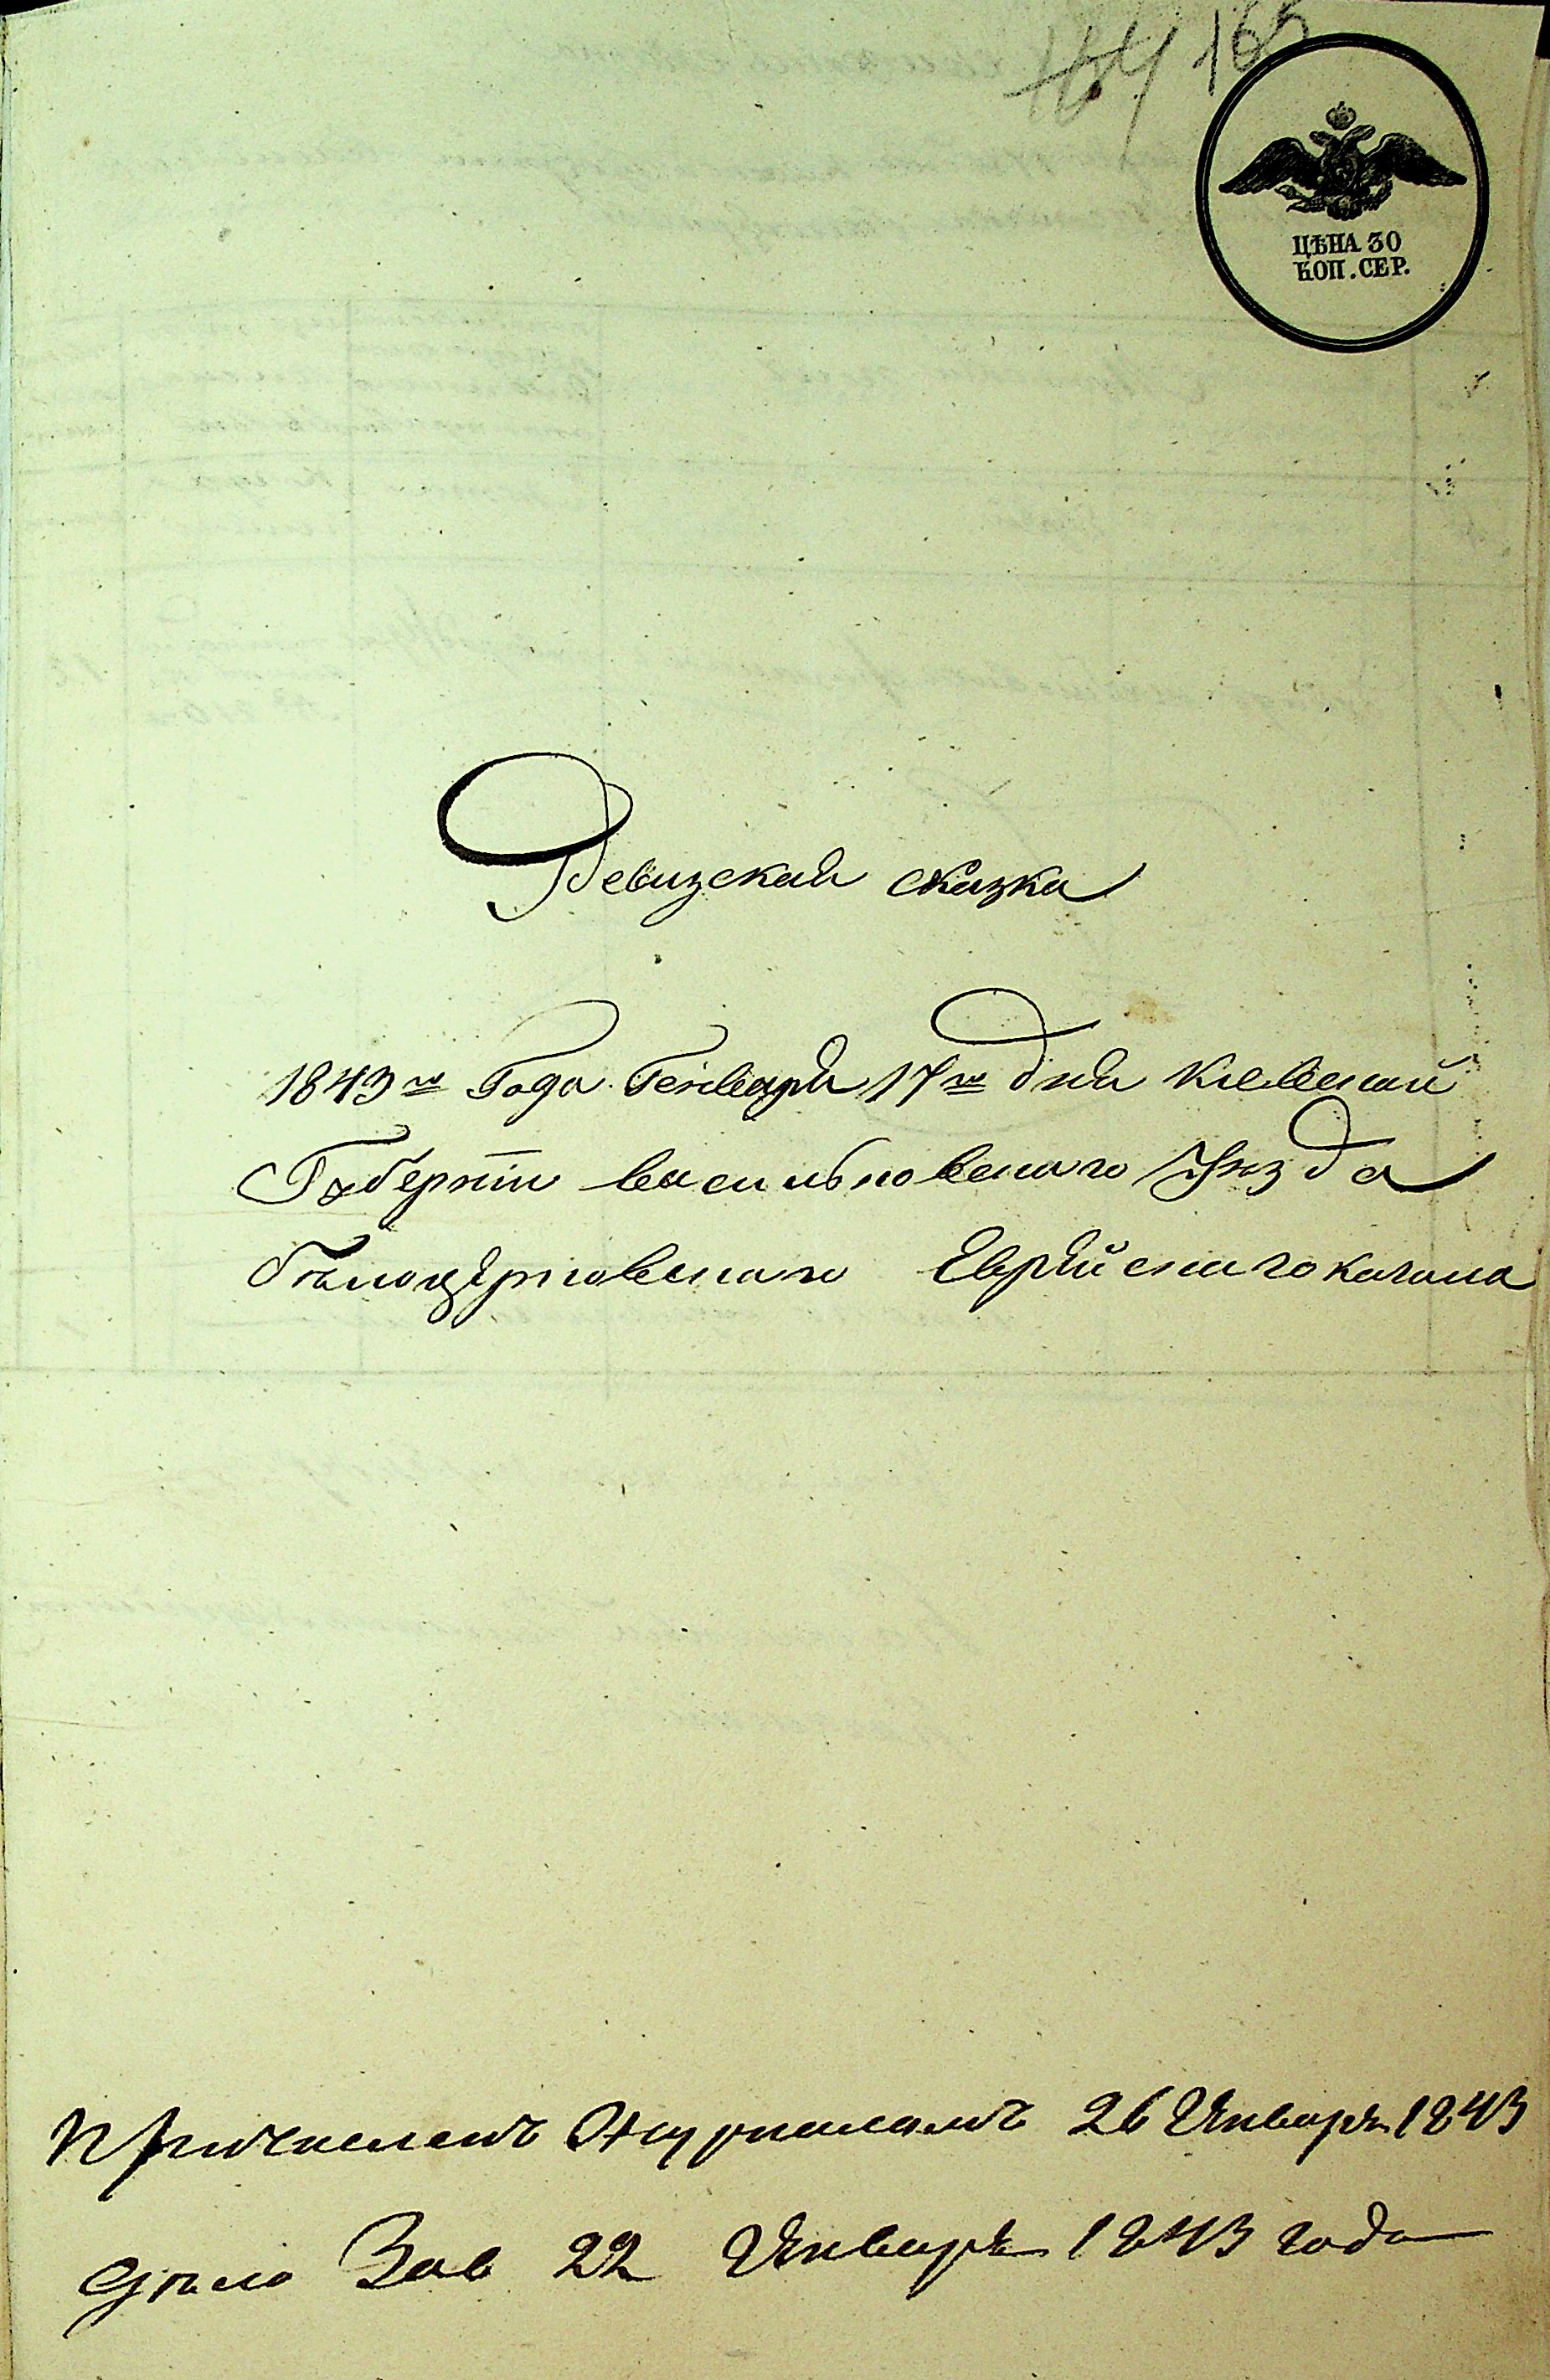 164 165
ЦѢНА 30
КОП. СЕР.
Ревизская сказка
1843го Года Генваря 17го дня Кіевской
Губерніи васильковскаго уѣзда
бѣлоцерковскаго Еврейскаго кагала
Причисленъ Журналомъ 26 Января 1843
дѣло Зав 22 Января 1843 года